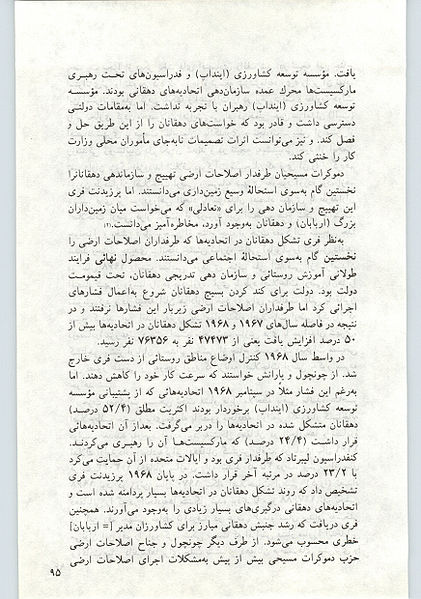 یافت. مؤسسه توسعه کشاورزی (اینداب) و فدراسیون‌های تحت رهبری
مارکسیست‌ها محرك عمده سازمان‌دهی اتحادیه‌های دهقانی بودند. مؤسسه
توسعه کشاورزی (اینداب) رهبران با تجربه نداشت. اما به‌مقامات دولتی
دسترسی داشت و قادر بود که خواست‌های دهقانان را از این طریق حل و
فصل کند. و نیز می‌توانست اثرات تصمیمات نابه‌جای مأموران محلی وزارت
کار را خنثی کند.
دموکرات مسیحیان طرفدار اصلاحات ارضی تهییج و سازماندهی دهقانانرا
نخستین گام به‌سوی استحالهٔ وسیع زمین‌داری می‌دانستند. اما پرزیدنت فری
این تهییج و سازمان دهی را برای «تعادلی» که می‌خواست میان زمین‌داران
بزرگ (اربابان) و دهقانان به‌وجود آورد، مخاطره‌آمیز می‌دانست.
به‌نظر فری تشکل دهقانان در اتحادیه‌ها که طرفداران اصلاحات ارضی را
نخستین گام به‌سوی استحالهٔ اجتماعی می‌دانستند. محصول نهائی فرایند
طولانی آموزش روستائی و سازمان دهی تدریجی دهقانان، تحت قیمومت
دولت بود. دولت برای کند کردن بسیج دهقانان شروع به‌اعمال فشارهای
اجرائی کرد اما طرفداران اصلاحات ارضی زیربار این فشارها نرفتند و در
نتیجه در فاصله سال‌های ۱۹۶۷ و ۱۹۶۸ تشکل دهقانان در اتحادیه‌ها بیش از
۵۰ درصد افزایش یافت یعنی از ۴۷۴۷۳ نفر به ۷۶۳۵۶ نفر رسید.
در واسط سال ۱۹۶۸ کنترل اوضاع مناطق روستائی از دست فری خارج
شد. از چونچول و یارانش خواستند که سرعت کار خود را کاهش دهند. اما
به‌رغم این فشار مثلاً در سپتامبر ۱۹۶۸ اتحادیه‌هائی که از پشتیبانی مؤسسه
توسعه کشاورزی (اینداب) برخوردار بودند اکثریت مطلق (۵۲/۴ درصد)
دهقانان متشکل شده در اتحادیه‌ها را دربر می‌گرفت. بعداز آن اتحادیه‌هائی
قرار داشت (۲۴/۴ درصد) که مارکسیست‌ها آن را رهبری می‌کردند.
کنفدراسیون لیبرتاد که طرفدار فری بود و ایالات متحده از آن حمایت می‌کرد
با ۲۳/۲ درصد در مرتبه آخر قرار داشت. در پایان ۱۹۶۸ پرزیدنت فری
تشخیص داد که روند تشکل دهقانان در اتحادیه‌ها بسیار پردامنه شده است و
اتحادیه‌های دهقانی درگیری‌های بسیار زیادی را به‌وجود می‌آورند. همچنین
فری دریافت که رشد جنبش دهقانی مبارز برای کشاورزان مدیر [= اربابان]
خطری محسوب می‌شود. از طرف دیگر چونچول و جناح اصلاحات ارضی
حزب دموکرات مسیحی بیش از بیش به‌مشکلات اجرای اصلاحات ارضی
۹۵